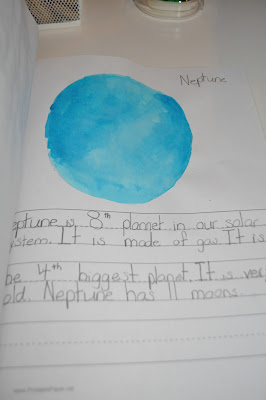 Neptune
eptune is 8th plannet in our solar
ystem. It is made of gas. It is
be 4th biggest planet. It is ver
old. Neptune has 11 moons